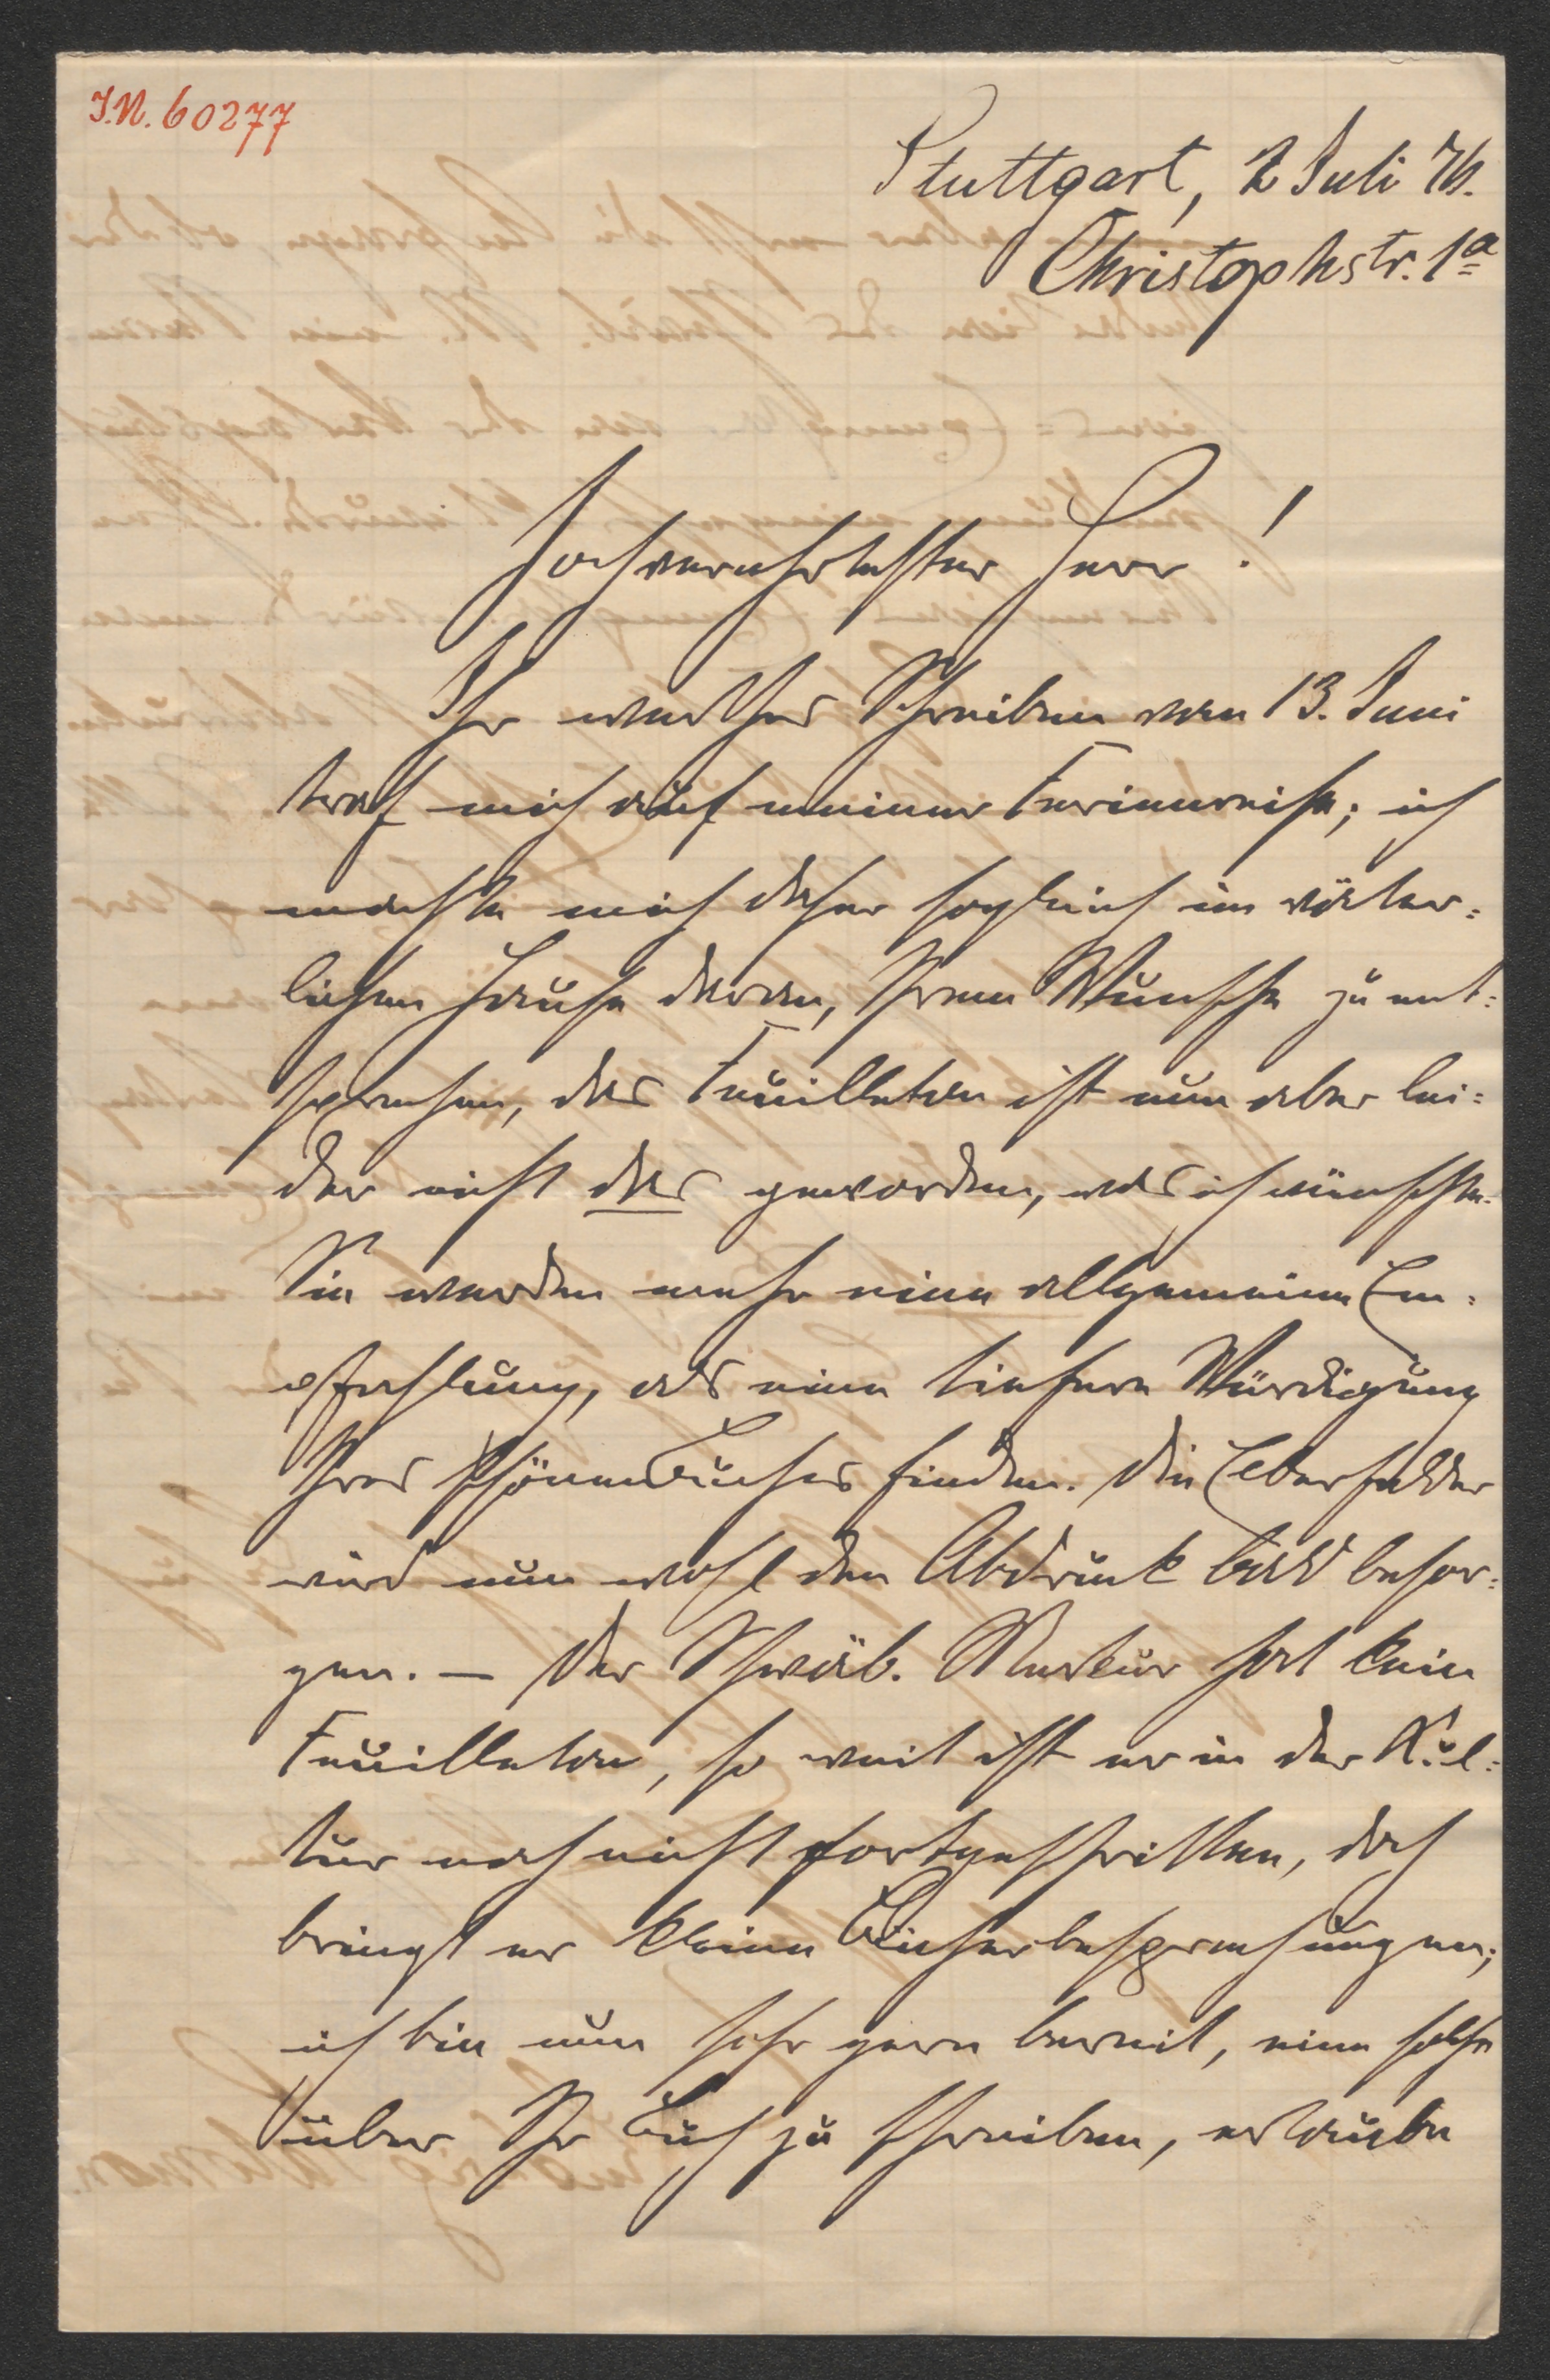 J.N. 60277
Stuttgart, 2 Juli 76.
Christophstr. 1a
Hochverehrtester Herr!
Ihr werthes Schreiben vom 13. Juni
traf mich auf meiner Ferienreise; ich
machte mich daher sogleich im väter=
lichen Hause daran, Ihrem Wunsche zu ent=
sprechen, das Feuilleton ist nun aber lei=
der nicht das geworden, was ich wünschte.
Sie werden mehr eine allgemeine Em=
pfehlung, als eine tiefere Würdigung
Ihres schönen Buches finden. Die Elberfelder
wird nun wohl den Abdruck bald besor=
gen. – Der Schwäb. Merkur hat kein
Feuilleton, so weit ist er in der Kul=
tur noch nicht fortgeschritten, doch
bringt er kleine Bücherbesprechungen;
ich bin nun sehr gern bereit, eine solche
über Ihr Buch zu schreiben, erlaube